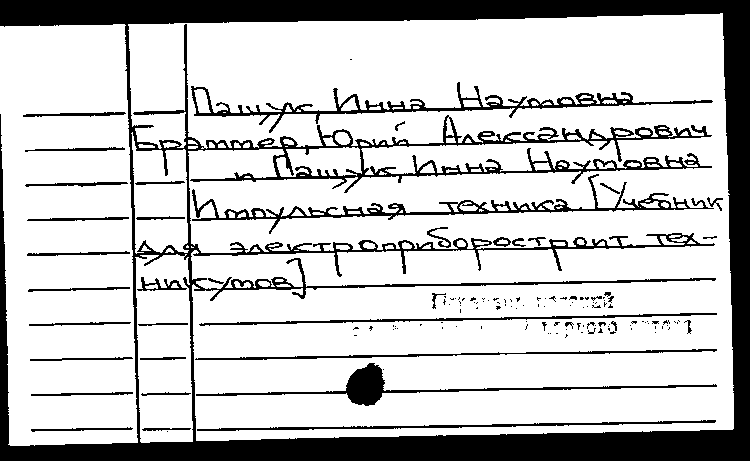 Пащук, Инна Наумовна
Браммер, Юрий Александрович
и Пащук, Инна Наумовна
Импульсная техника. [Учебник
для электроприборостроит. тех-
никумов].
первого